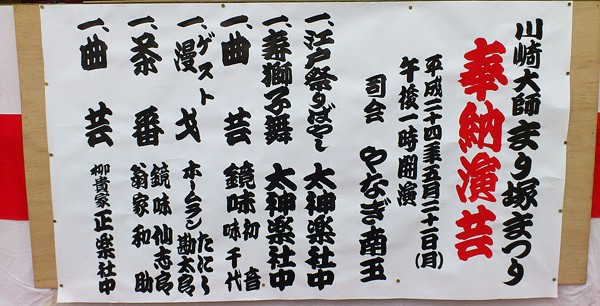 川崎大師まり塚まつり
奉納演芸
平成二十四年五月二十一日(月)
午後一時開演
司会 やなぎ南玉
一、江戸祭りばやし 太神楽社中
一、寿獅子舞 太神楽社中
一、曲芸 鏡味初音
鏡味味千代
一、ゲスト
漫才 ホームラン たにし
勘太郎
一、茶番 鏡味仙志郎
翁家和助
一、曲芸 柳貴家正楽社中